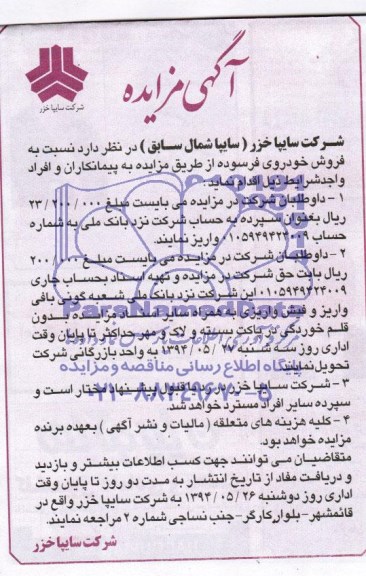 آگهی مزایده
شرکت سایپا خزر
شرکت سایپا خزر ( سایپا شمال سابق ) در نظر دارد نسبت به
فروش خودروی فرسوده از طریق مزایده به پیمانکاران و افراد
واجدشرایط ذیل اقدام نماید:
۱ - داوطلبان شرکت در مزایده می بایست مبلغ ۲۳/۲۰۰/۰۰۰
ریال بعنوان سپرده به حساب شرکت نزد بانک ملی به شماره
حساب ۰۱۰۵۹۴۹۴۲۳۰۰۹ واریز نمایند.
۲ - داوطلبان شرکت در مزایده می بایست مبلغ ۲۰۰/۰۰۰
ریال بابت حق شرکت در مزایده و تهیه اسناد بحساب جاری
۰۱۰۵۹۴۹۴۲۳۰۰۹ این شرکت نزد بانک ملی شعبه کوتی بافی
واریز و فیش واریزی به همراه سایر
قلم خوردگی در پاکت بسته و لاک و مهر حداکثر تا پایان وقت
اداری روز سه شنبه ۱۳۹۴/۰۵/۲۷ به واحد بازرگانی شرکت
تحویل نمایند.
۳ - شرکت سایپا خزر در رد یا قبول پیشنهاد مختار است و
سپرده سایر افراد مسترد خواهد شد.
۴ - کلیه هزینه های متعلقه ( مالیات و نشر آگهی ) بعهده برنده
مزایده خواهد بود.
متقاضیان می توانند جهت کسب اطلاعات بیشتر و بازدید
و دریافت مفاد از تاریخ انتشار به مدت دو روز تا پایان وقت
اداری روز دوشنبه ۱۳۹۴/۰۵/۲۶ به شرکت سایپا خزر واقع در
قائمشهر-بلوار کارگر-جنب نساجی شماره ۲ مراجعه نمایند.
شرکت سایپا خزر
ParsNamadData
پایگاه اطلاع رسانی مناقصه و مزایده
۰۲۱-۸۸۳۴۹۶۷۰-۵